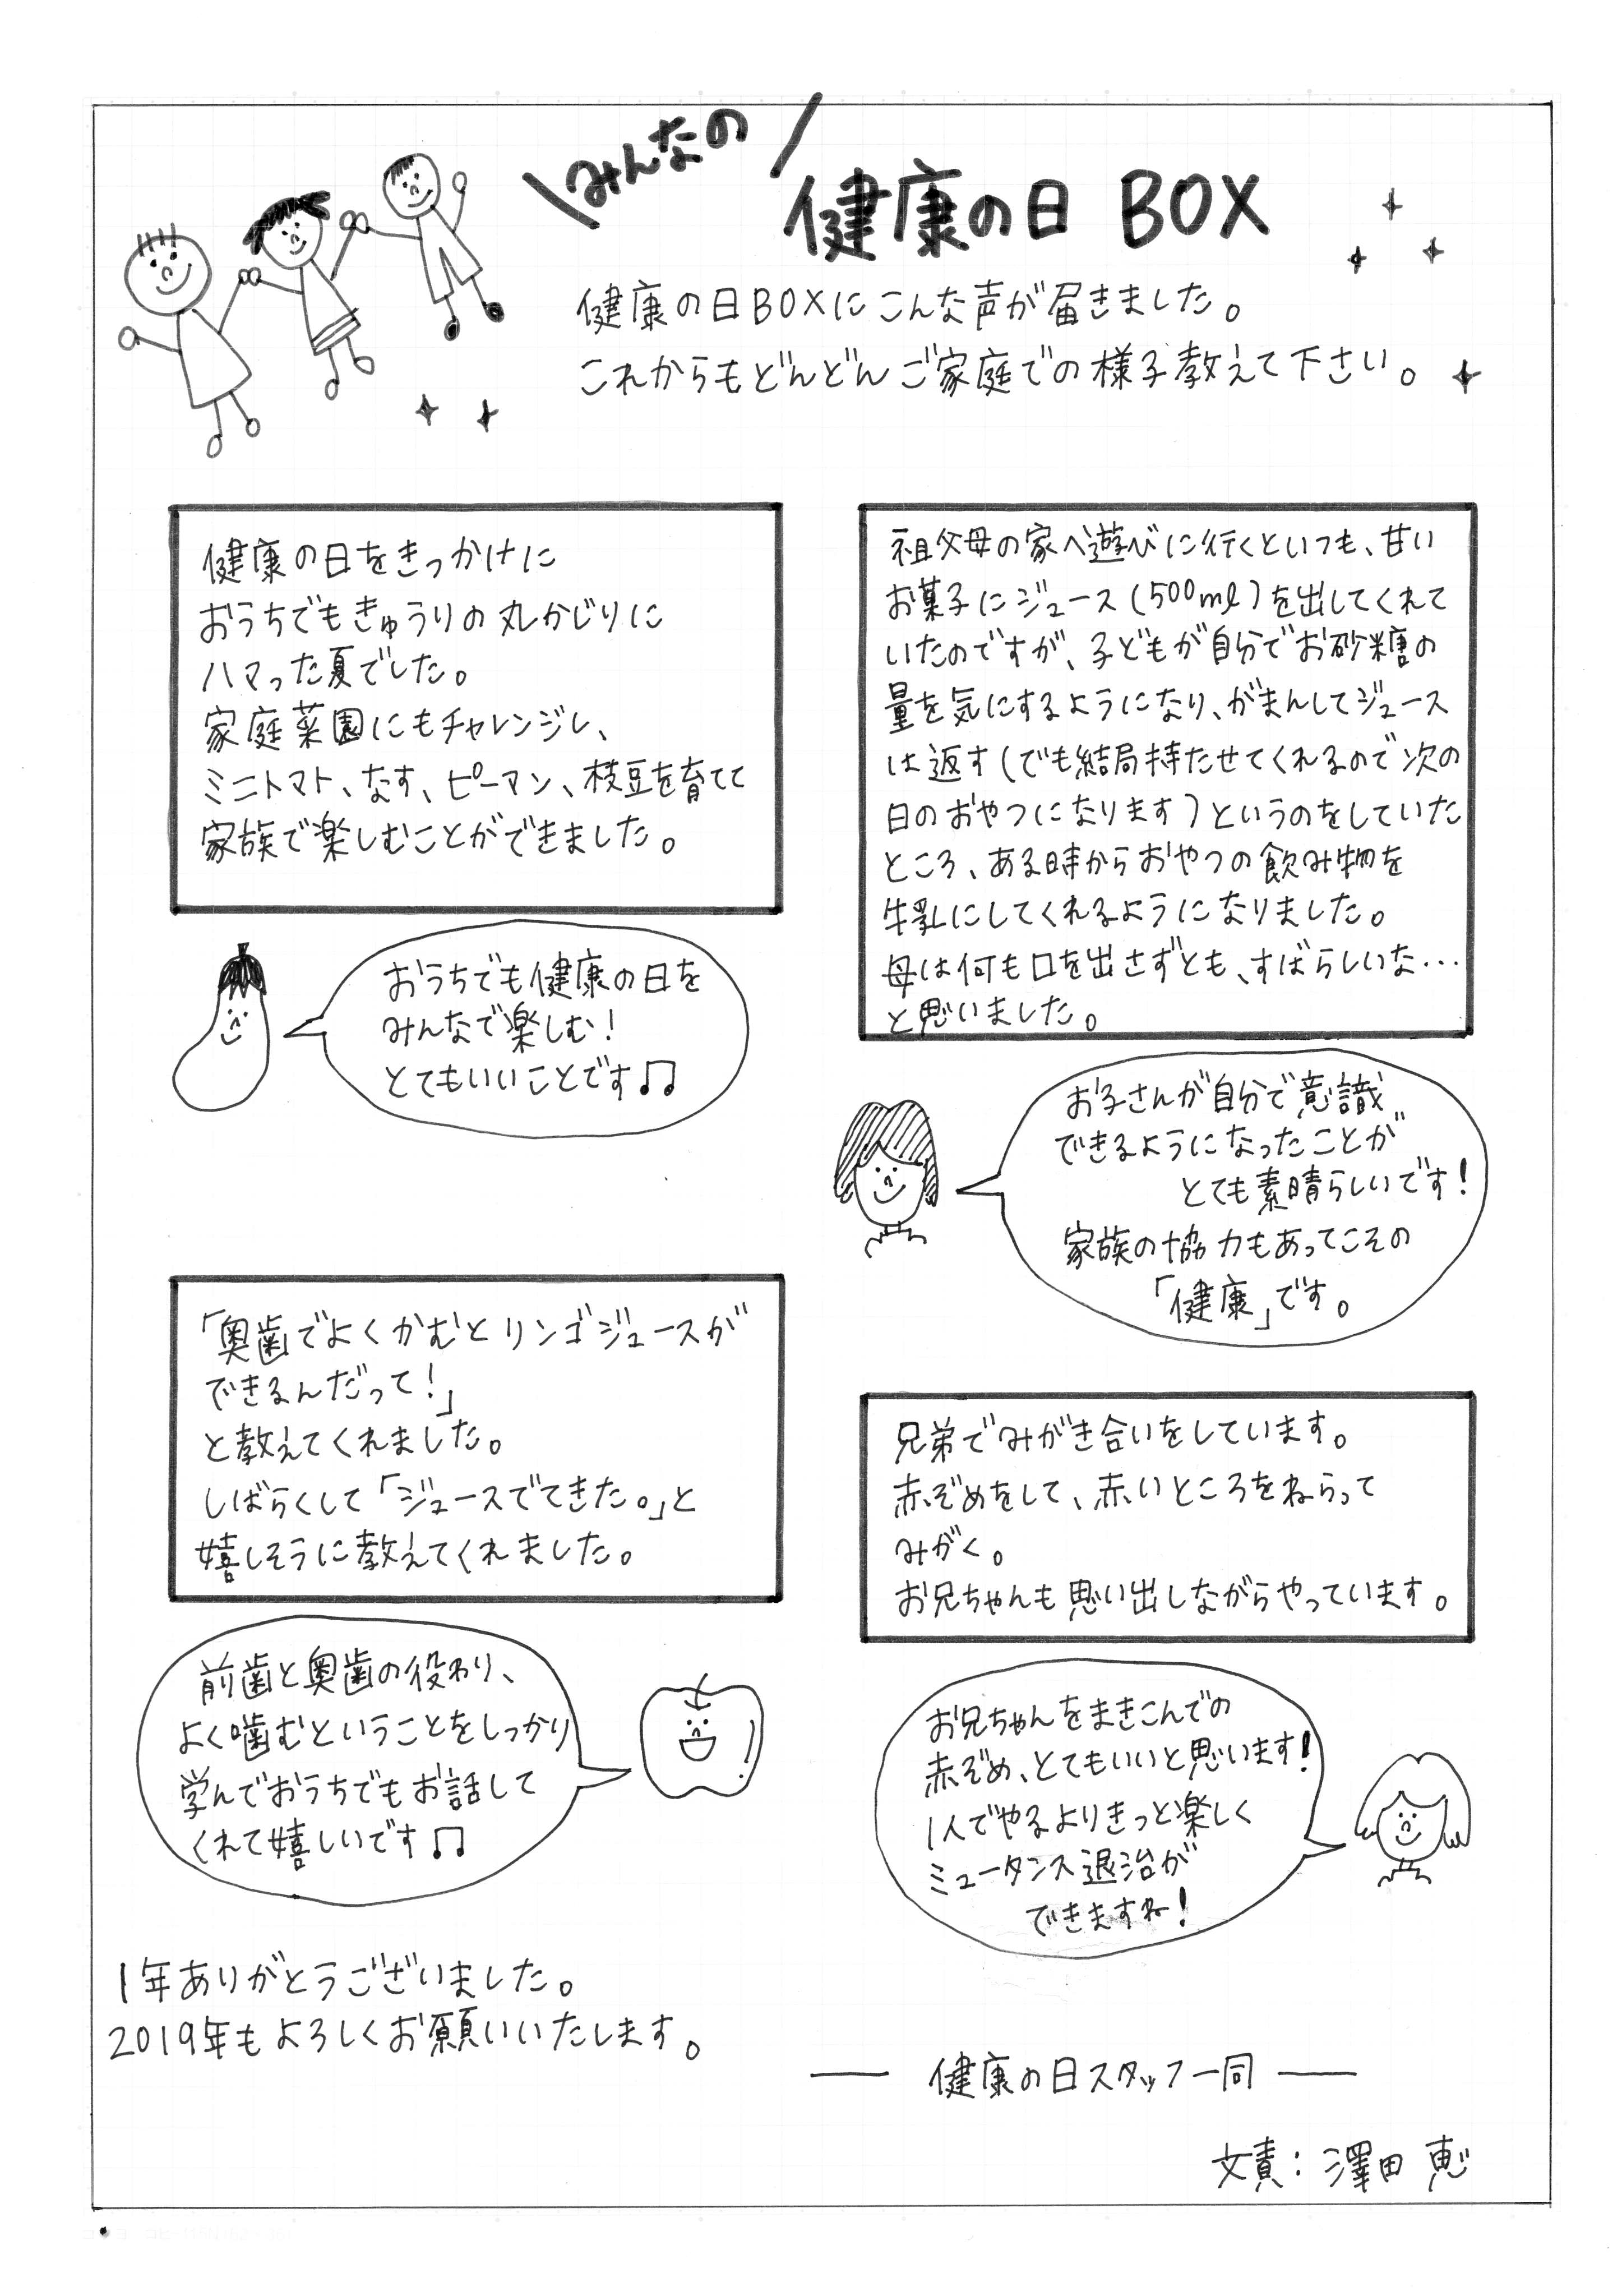 みんなの
健康の日 BOX
健康の日BOXにこんな声が届きました。
これからもどんどんご家庭での様子教えて下さい。
健康の日をきっかけに
おうちでもきゅうりの丸かじりに
ハマった夏でした。
家庭菜園にもチャレンジし、
ミニトマト、なす、ピーマン、枝豆を育てて
家族で楽しむことができました。
おうちでも健康の日を
みんなで楽しむ!
とてもいいことです♫
祖父母の家へ遊びに行くといつも、甘い
お菓子にジュース(500ml)を出してくれて
いたのですが、子どもが自分でお砂糖の
量を気にするようになり、がまんしてジュース
は返す(でも結局持たせてくれるので次の
日のおやつになります)というのをしていた
ところ、ある時からおやつの飲み物を
牛乳にしてくれるようになりました。
母は何も口を出さずとも、すばらしいな…
と思いました。
お子さんが自分で意識
できるようになったことが
とても素晴らしいです!
家族の協力もあってこその
「健康」です。
「奥歯でよくかむとリンゴジュースが
できるんだって!」
と教えてくれました。
しばらくして「ジュースでてきた。」と
嬉しそうに教えてくれました。
前歯と奥歯の役わり、
よく噛むということをしっかり
学んでおうちでもお話して
くれて嬉しいです♫
兄弟でみがき合いをしています。
赤ぞめをして、赤いところをねらって
みがく。
お兄ちゃんも思い出しながらやっています。
お兄ちゃんをまきこんでの
赤ぞめ、とてもいいと思います!
1人でやるよりきっと楽しく
ミュータンス退治が
できますね!
1年ありがとうございました。
2019年もよろしくお願いいたします。
― 健康の日スタッフ一同 ―
文責:澤田 恵